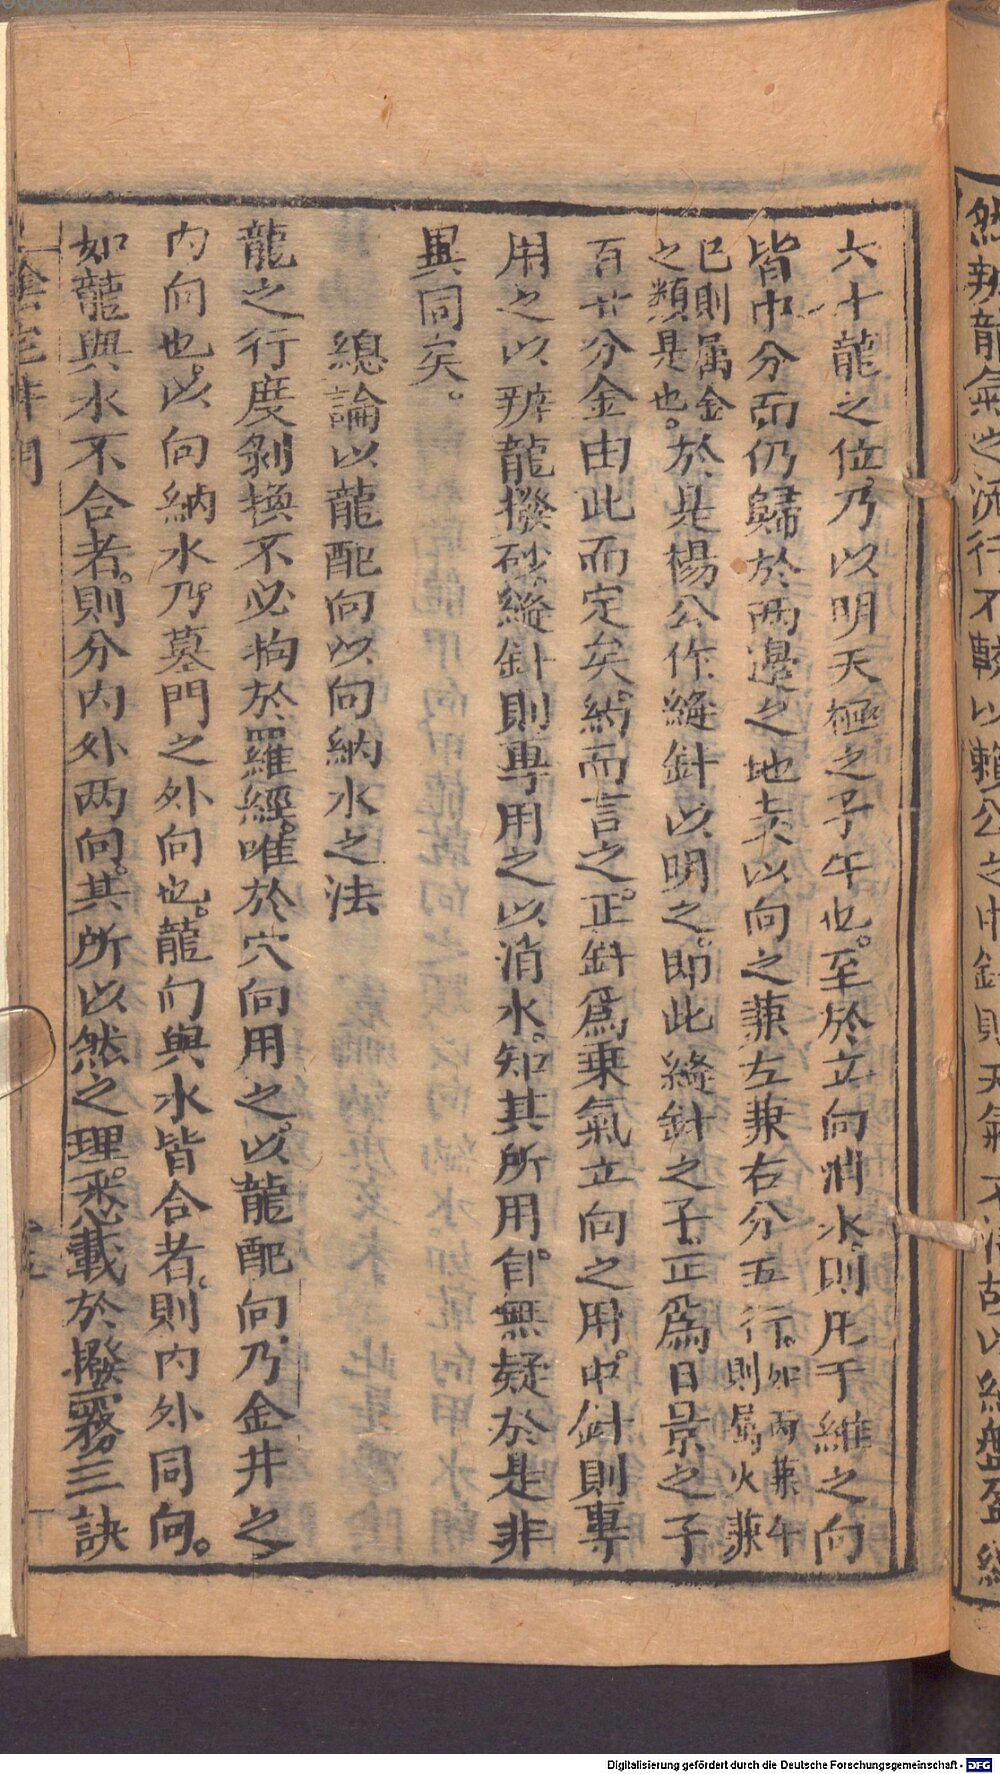 六十龍之位乃以明天極之子午也。至於立向消水。則凡干維之向
皆中分而仍歸於两邊之地支以向之兼左兼右分五行。如丙兼午則屬火兼
巳則属金之類是也。於是楊公作縫針以明之。即此縫針之子正爲日景之子
百廿分金由此而定矣。約而言之。正針爲乗氣立向之用。中針則專
用之以辨龍撥砂縫針則專用之以消水。知其所用。自無疑於是非
異同矣。
總論以龍配向以向納水之法
龍之行度剝換不必拘於羅經。唯於穴向用之。以龍配向乃金井之
內向也。以向納水乃墓門之外向也。龍们與水皆合者。則內外同向。
如龍與水不合者。則分內外两向。其所以然之理。悉載於撥霧三訣
然辨龍氣之流行不
以賴公之中針則天氣不
Digitalisierung gefördert durch die Deutsche Forschungsgemeinschaft - DFG